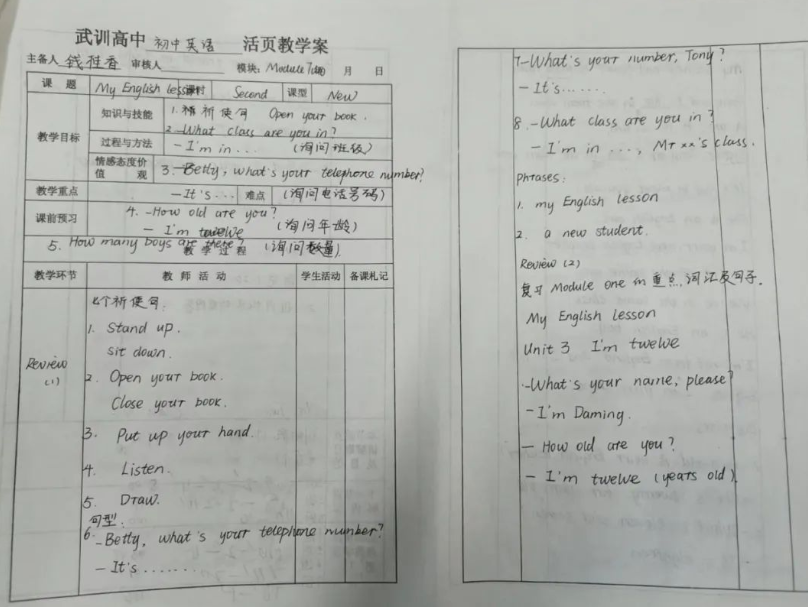 武训高中 初中英语 活页教学案
主备人 钱桂香 审核人 模块: Module 7 月 日
课题 My English lesson 课时 Second 课型 New
教学目标 知识与技能 1. 祈使句 Open your book.
2. -What class are you in?
过程与方法 -I'm in ... (询问班级)
情感态度价值观 3. Betty, what's your telephone number?
教学重点 -It's ... 难点 (询问电话号码)
课前预习 4. -How old are you?
- I'm twelve (询问年龄)
5. How many boys are there? (询问数量).
教学过程
教学环节 教师活动 学生活动 备课札记
Review (1)
个祈使句.
1. Stand up.
Sit down.
2. Open your book.
Close your book.
3. Put up your hand.
4. Listen.
5. Draw.
句型:
6. -Betty, what's your telephone number?
- It's .......
7-What's your number, Tony?
- It's ......
8. -What class are you in?
- I'm in ..., Mr xx's class.
Phrases:
1. my English lesson
2. a new student.
Review (2)
复习 Module one 的重点,词汇及句子.
My English lesson
Unit 3 I'm twelve
-What's your name, please?
-I'm Daming.
- How old are you?
- I'm twelve (years old)